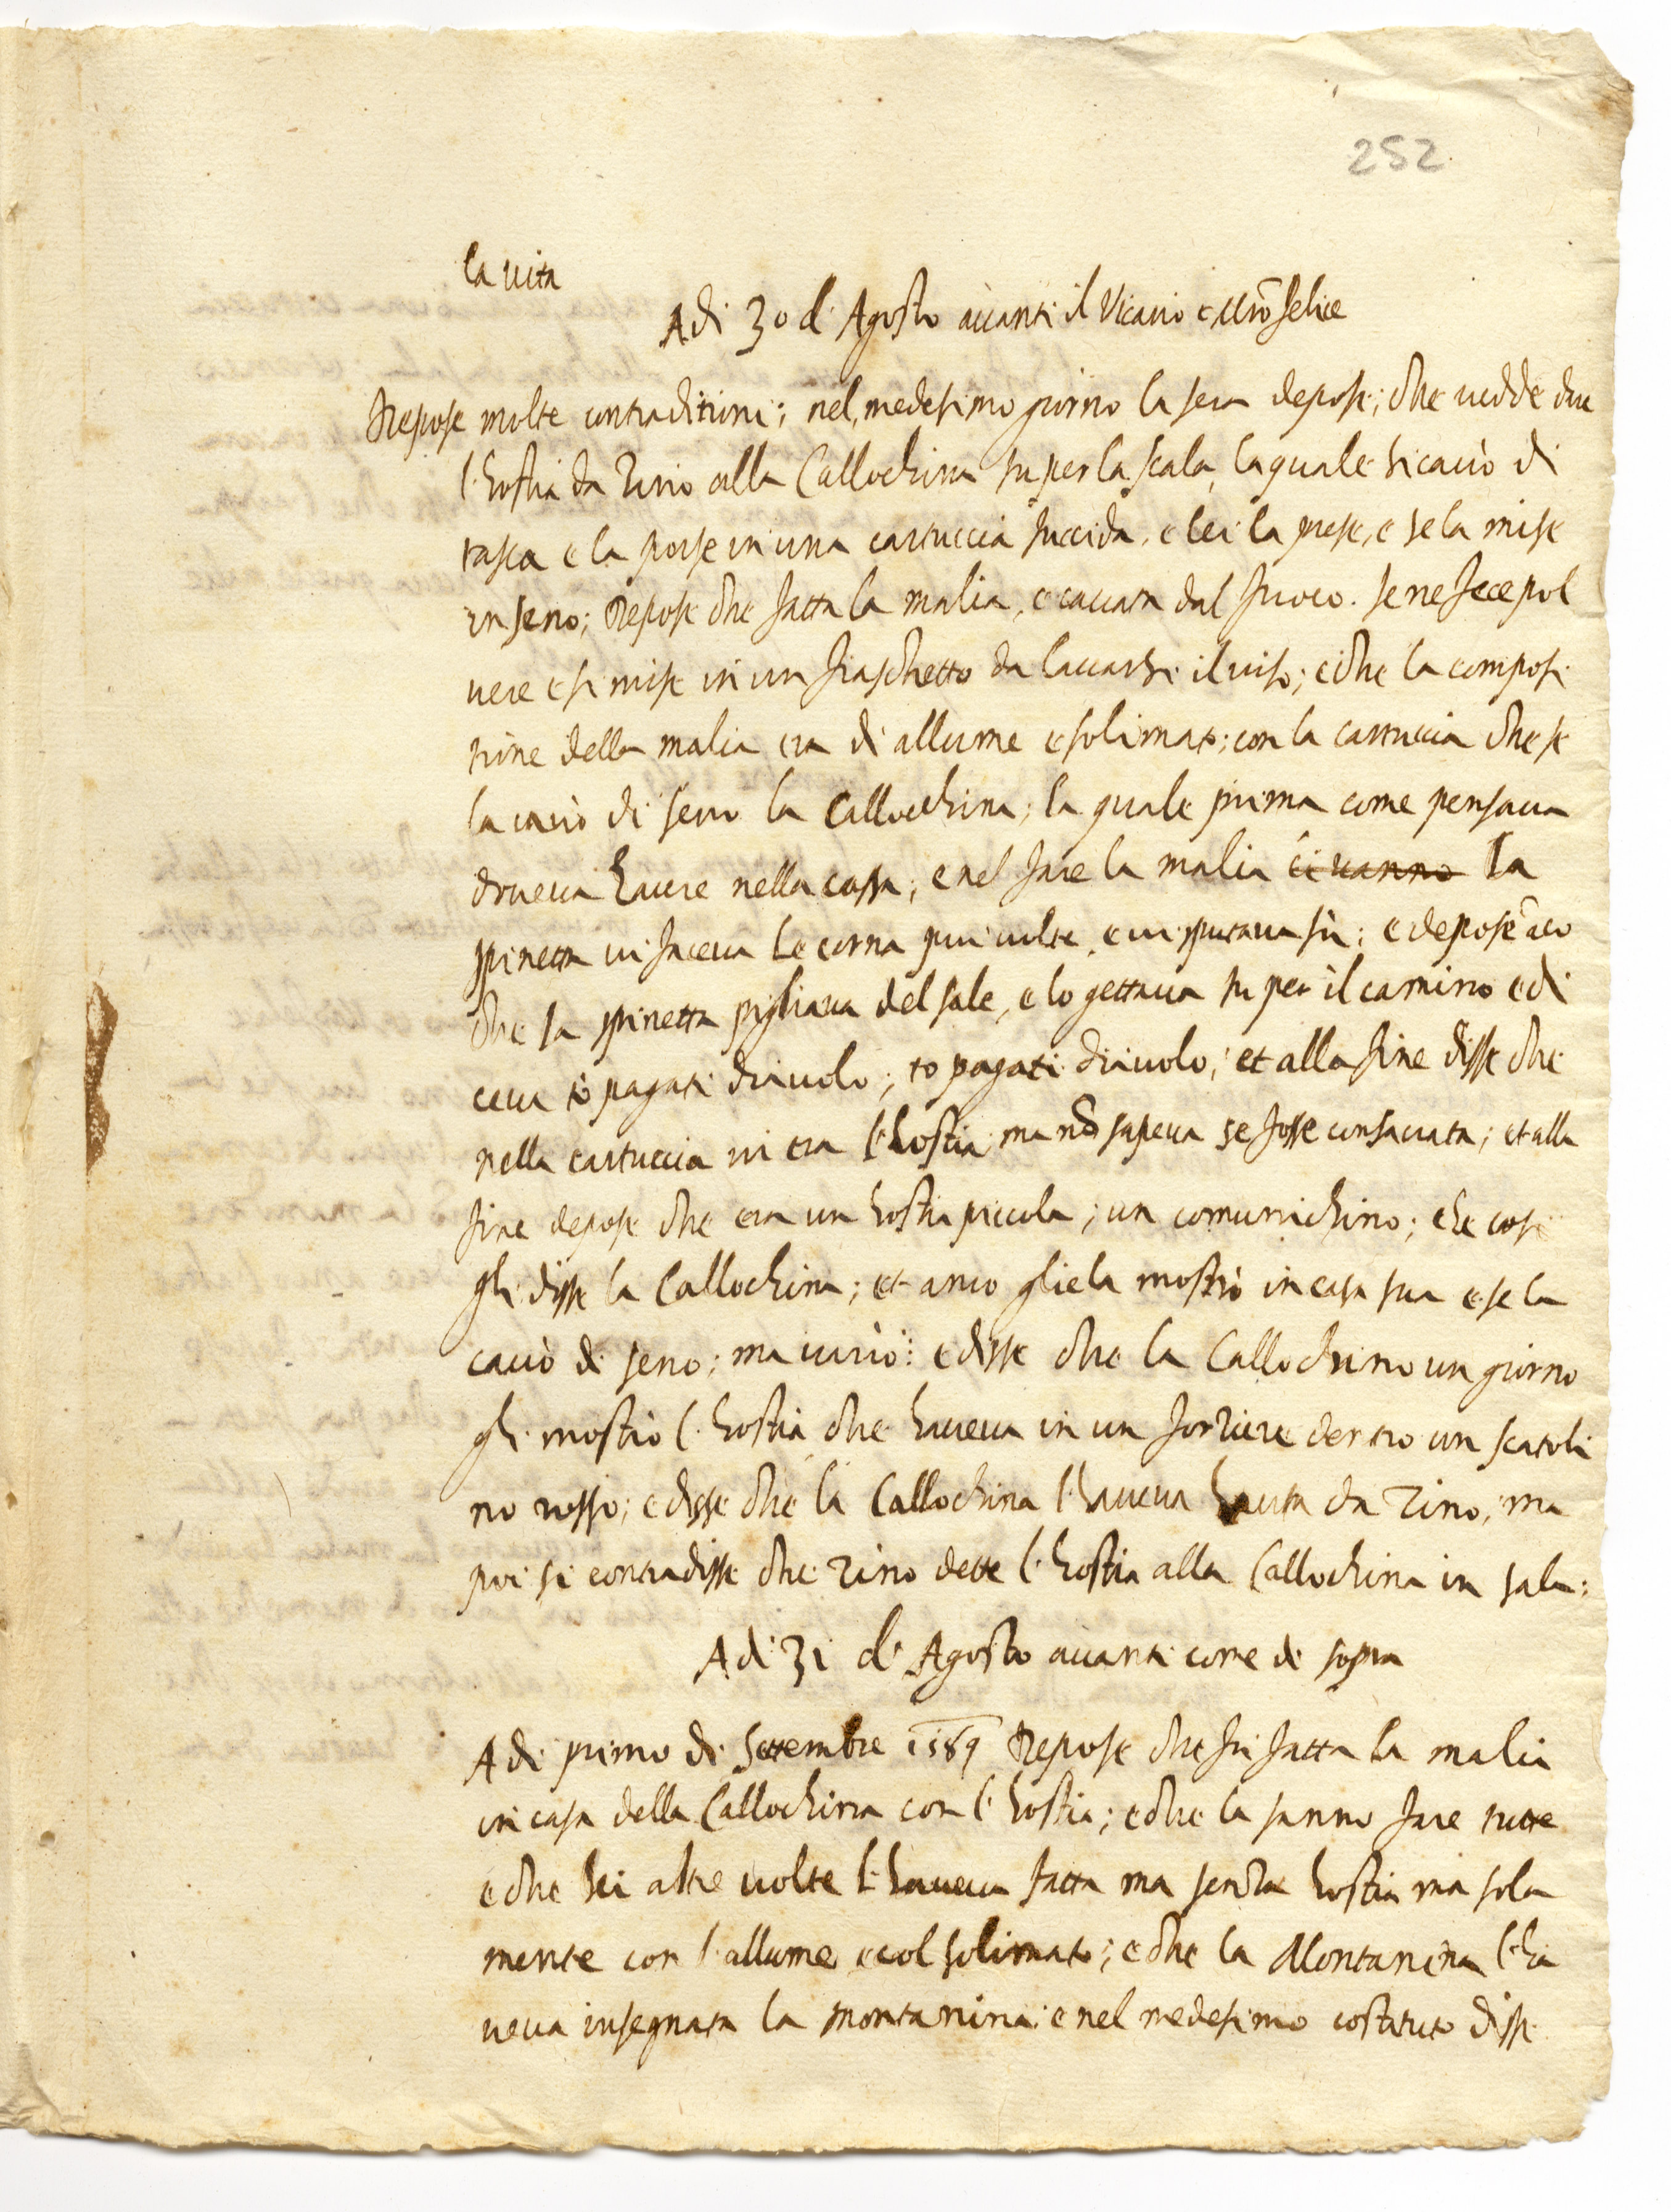 252
la uita
Adi 30 d'Agosto auanti il Vicario e Mrõ felice
Depose molte contraditioni; nel medesimo giorno la sera depose; che uedde dare
l'hostia da Zino alla Callochina su per la scala, laquale si cauò di
tasca e la porse in una cartuccia succida, e lei la prese, e se la mise
in seno; Depose che fatta la malia, e cauata dal fuoco. se ne fece pol
uere e si mise in un fiaschetto da lauarsi il uiso; e che la composi
tione della malia era di allume e solimato; con la cartuccia che se
la cauò di seno la Callochina; la quale prima come pensaua
doueua hauere nella cassa; e nel fare la malia ci uanno la
spinetta ui faceua le corna piu uolte, e ui sputaua sù; e depose aco
che la spinetta pigliaua del sale, e lo gettaua su per il camino e di
ceua tò pagati diauolo; to pagati diauolo; et alla fine disse che
nella cartuccia ui era l'hostia ma nõ sapeua se fosse consacrata; et alla
fine depose che era un hostia piccola; un comunichino; che cosi
gli disse la Callochina; et anco gliela mostrò in casa sua e se la
cauò di seno; ma uariò: e disse che la Callochina un giorno
gli mostrò l'hostia che haueua in un forziere dentro un scatoli
no rosso; e disse che la Callochina l'haueua hauta da Zino, ma
poi si contradisse che Zino dette l'hostia alla Callochina in sala:
Adi 31 d'Agosto auanti come di sopra
Adi primo di Settembre 1589 Depose che fu fatta la malia
in casa della Callochina con l'hostia; e che la sanno fare tutte
e che lei altre uolte l'haueua fatta ma senza hostia ma sola
mente con l'allume e col solimato; e che la Montanina l'ha
ueua insegnata la montanina: e nel medesimo costituto disse